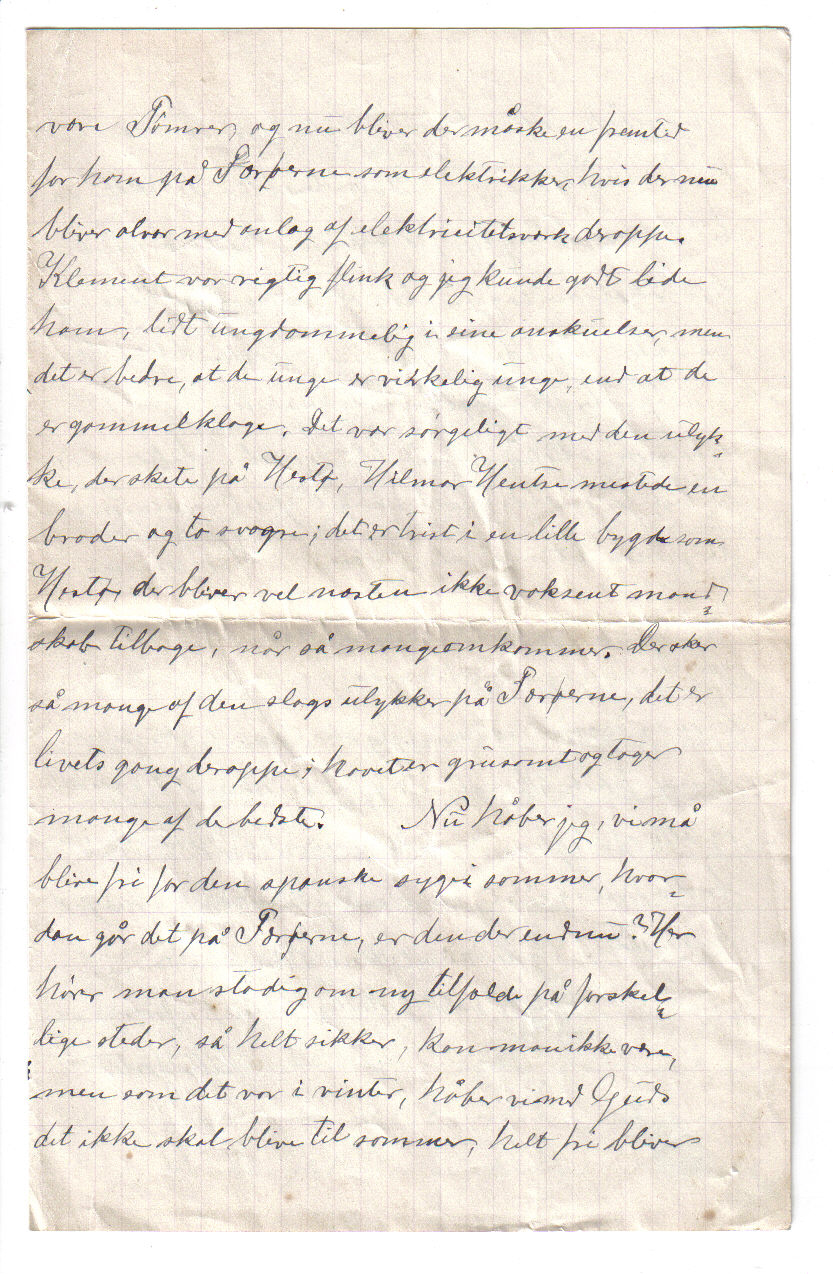 være Tömrer, og nu bliver der måske en fremtid
for ham på Færøerne som elektrikker, hvis der nu
bliver alvor med anlæg af elektricitetsværk deroppe.
Klement var rigtig flink og jeg kunde godt lide
ham, lidt ungdommelig i sine anskuelser, men
det er bedre, at de unge er virkelig unge, end at de
er gammelkloge. Det var sörgeligt med den ulyk-
ke, der skete på Hestø, Hilmar Hentse mistede en
broder og to svogre; det er trist i en lille bygd som
Hestø, der bliver vel næsten ikke voksent mand-
skab tilbage, når så mange omkommer. Der sker
så mange af den slags ulykker på Færøerne, det er
livets gang deroppe; havet er grusomt og tager
mange af de bedste. Nu håber jeg, vi må
blive fri for den spanske syge i sommer, hvor-
dan går det på Færøerne, er den der endnu? Her
hörer man stadig om ny tilfælde på forskel-
lige steder, så helt sikker, kan man ikke være,
men som det var i vinter, håber vi med Guds
det ikke skal blive til sommer, helt fri bliver